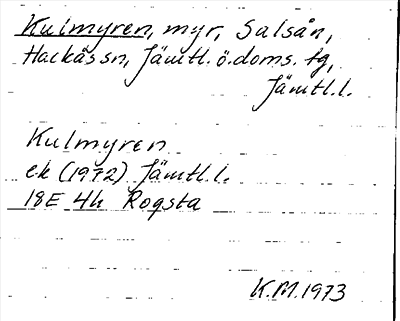 Kulmyren, myr, Salsån,
Hackås sn, Jämtl. ö. doms. tg,
Jämtl. l.
Kulmyren
ek (1972) Jämtl. l.
18E 4h Rogsta
K.M. 1973